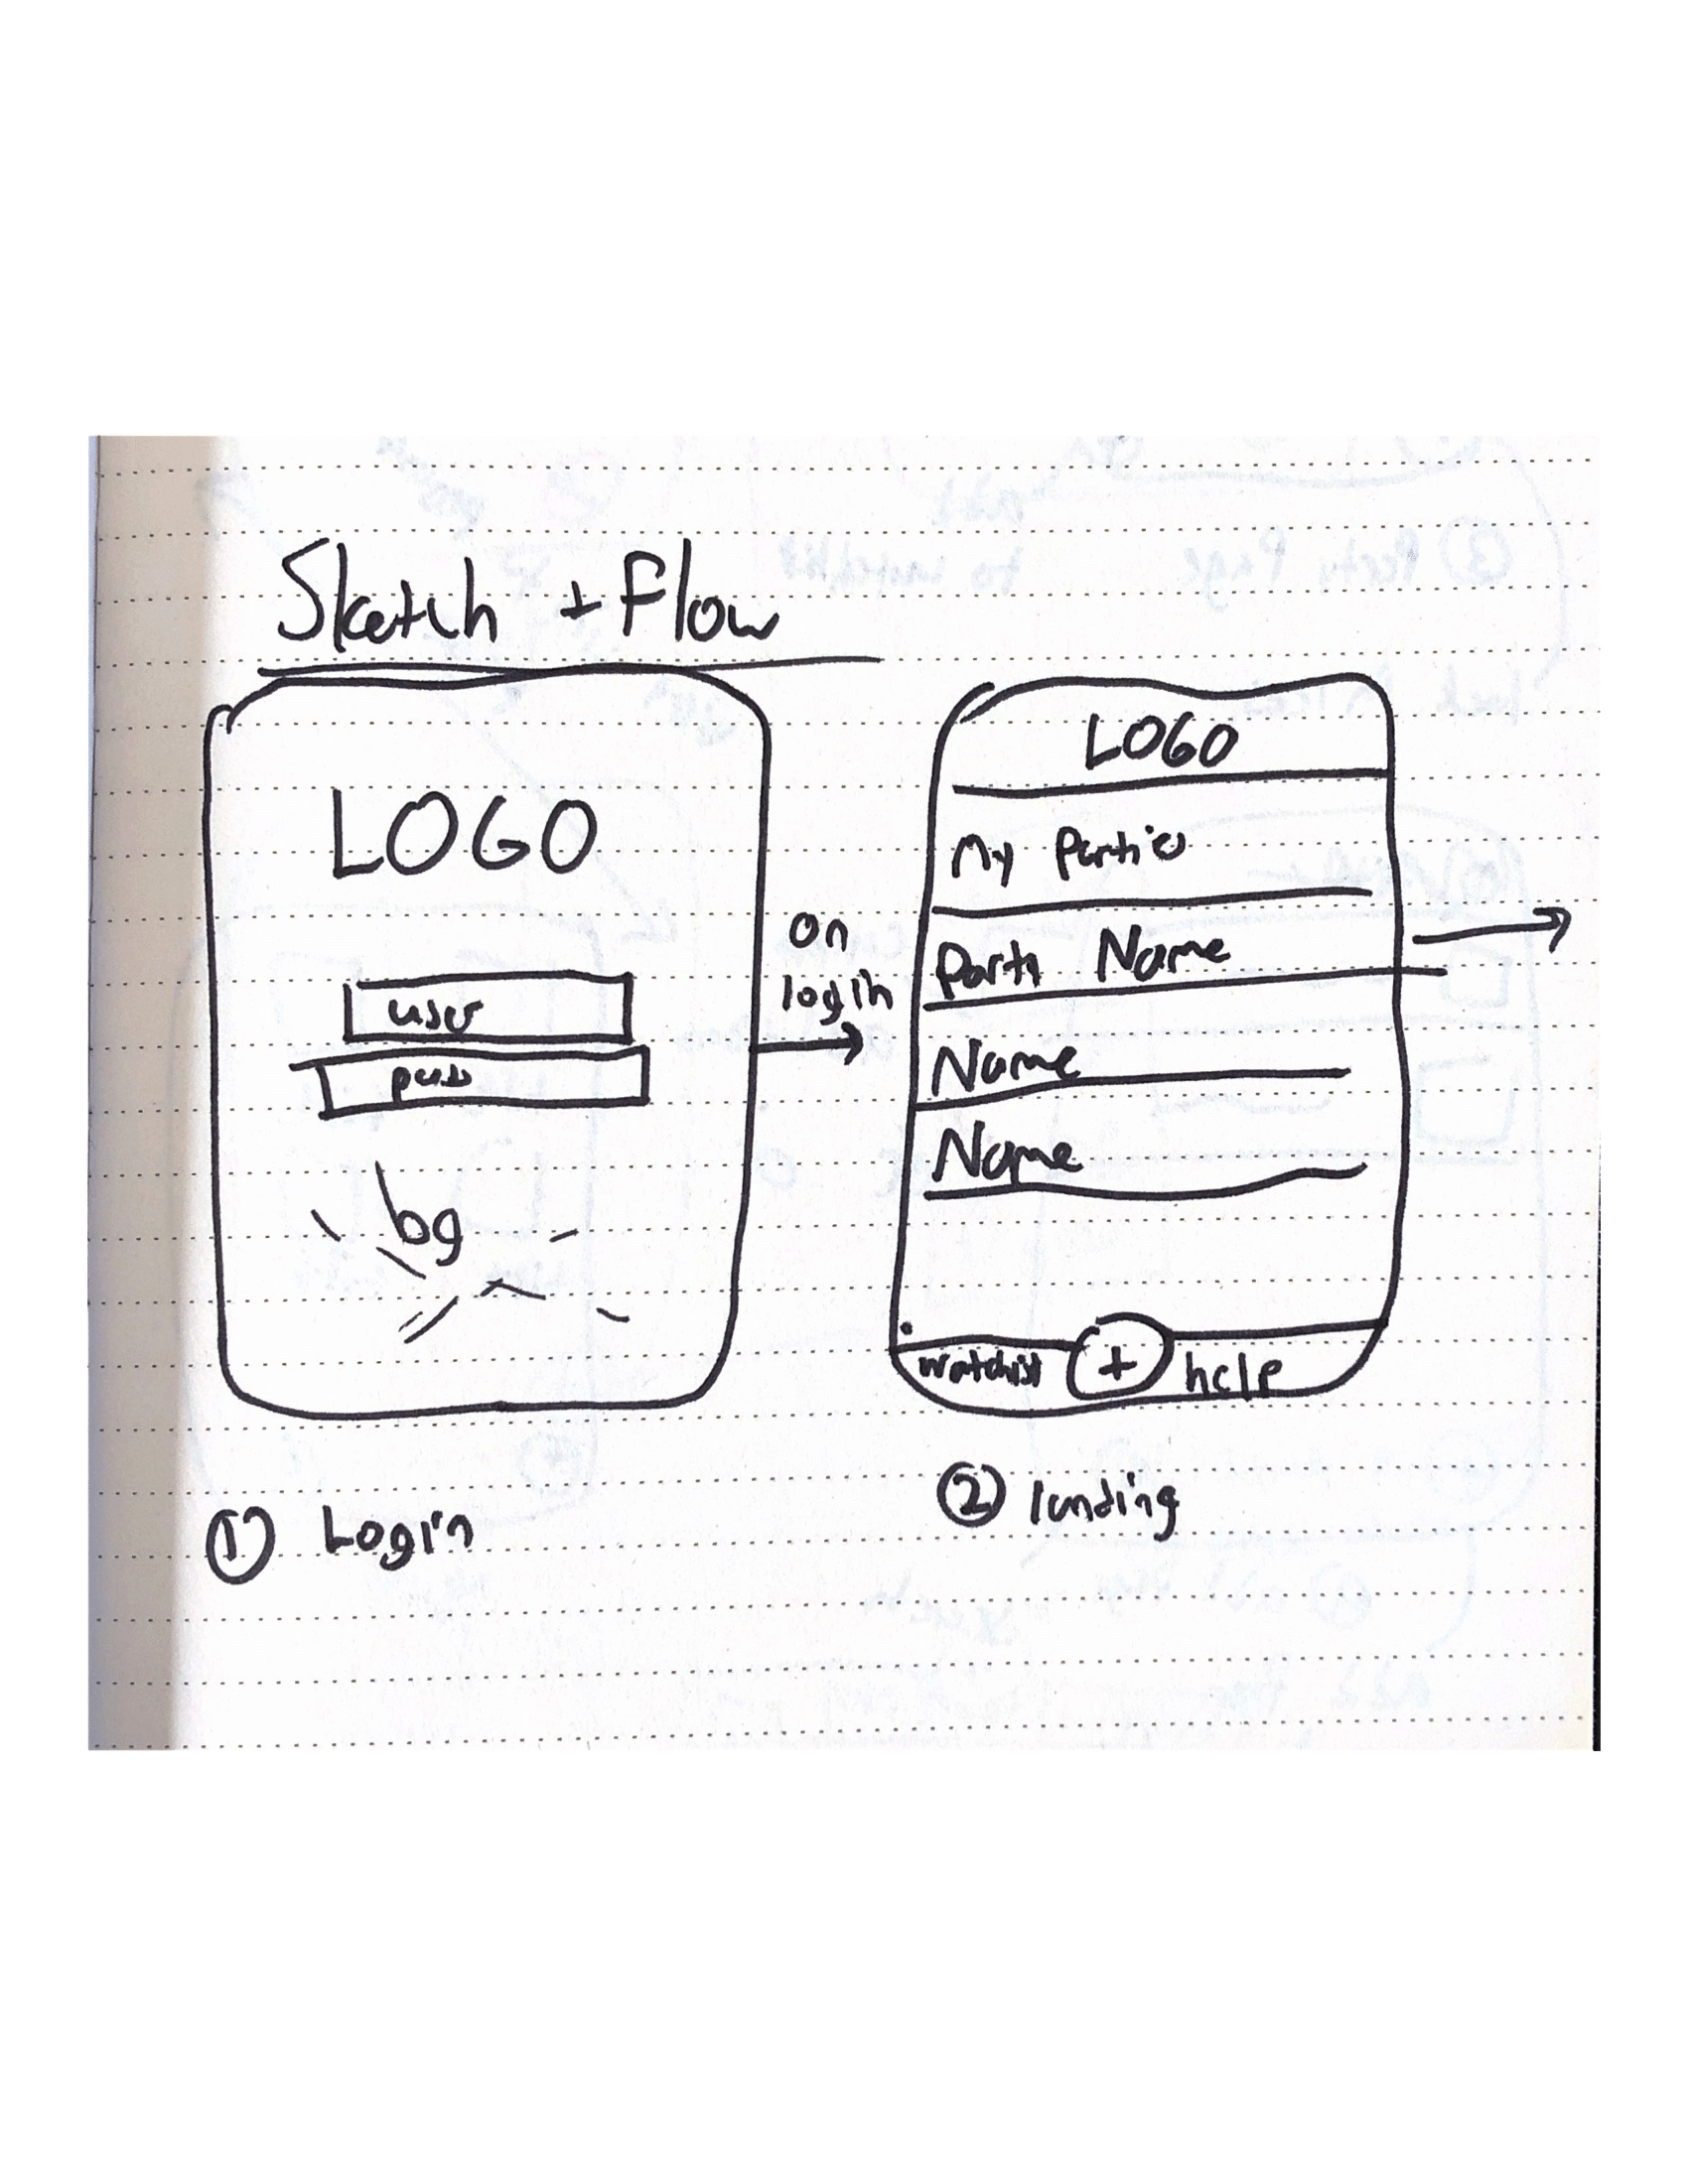 Sketch + Flow
LOGO
user
pass
bg
on
login
LOGO
My Parties
Party Name
Name
Name
watchlist
+
help
① Login
② landing